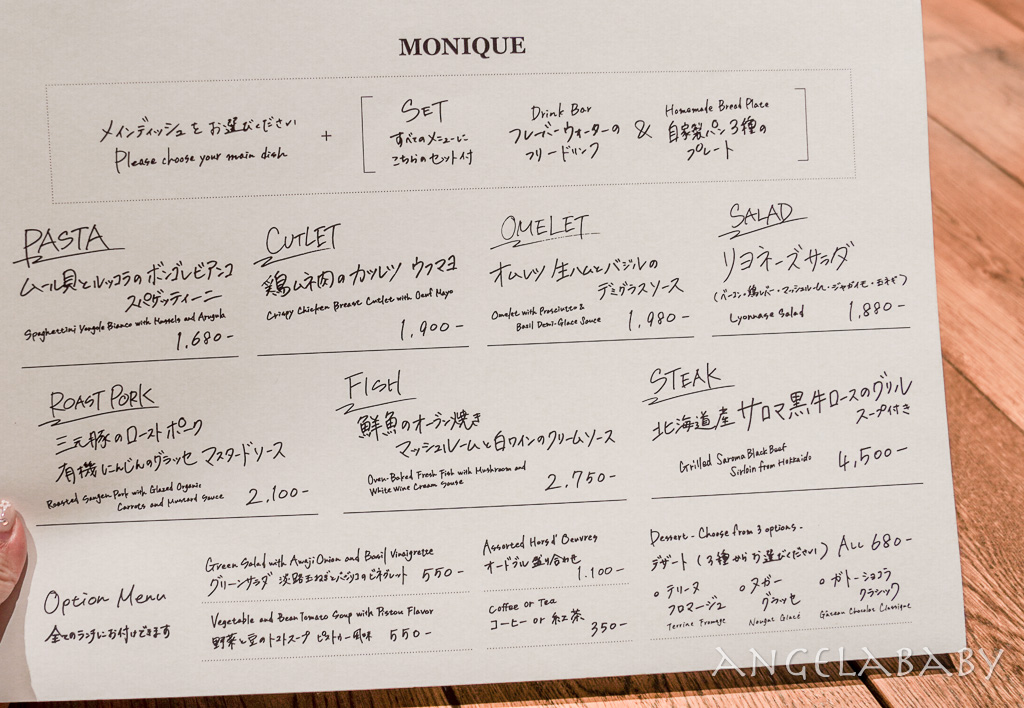 MONIQUE
メインディッシュをお選びください
Please choose your main dish
+
SET
すべてのメニューに
こちらのセット付
Drink Bar
フレーバーウォーターの
フリードリンク
&
Homemade Bread Plate
自家製パン3種の
プレート
PASTA
ムール貝とルッコラのボンゴレビアンコ
スパゲッティーニ
Spaghettini Vongole Bianco with Mussels and Arugula
1,680-
CUTLET
鶏ムネ肉のカツレツ ウフマヨ
Crispy Chicken Breast Cutlet with Oeuf Mayo
1,900-
OMELET
オムレツ 生ハムとバジルの
デミグラスソース
Omelet with Prosciutto &
Basil Demi-Glace Sauce
1,980-
SALAD
リヨネーズサラダ
(ベーコン・鶏レバー・マッシュルーム・ジャガイモ・玉ネギ)
Lyonnase Salad
1,880-
ROAST PORK
三元豚のローストポーク
有機にんじんのグラッセ マスタードソース
Roasted Sangen Pork with Glazed Organic
Carrots and Mustard Sauce
2,100-
FISH
鮮魚のオーブン焼き
マッシュルームと白ワインのクリームソース
Oven-Baked Fresh Fish with Mushroom and
White Wine Cream Sause
2,750-
STEAK
北海道産 サロマ黒牛ロースのグリル
スープ付き
Grilled Saroma Black Beef
Sirloin from Hokkaido
4,500-
Option Menu
全てのランチにお付けできます
Green Salad with Awaji Onion and Basil Vinaigrette
グリーンサラダ 淡路玉ねぎとバジリコのビネグレット 550-
Vegetable and Bean Tomato Soup with Pistou Flavor
野菜と豆のトマトスープ ピストゥー風味 550-
Assorted Hors d' Oeuvres
オードブル盛り合わせ
1.100-
Coffee or Tea
コーヒー or 紅茶
350-
Dessert - Choose from 3 options.
デザート (3種からお選びください) ALL 680-
○テリーヌ
フロマージュ
Terrine Fromage
○ヌガー
グラッセ
Nougat Glacé
○ガトーショコラ
クラシック
Gâteau Chocolat Classique
ANGELABABY